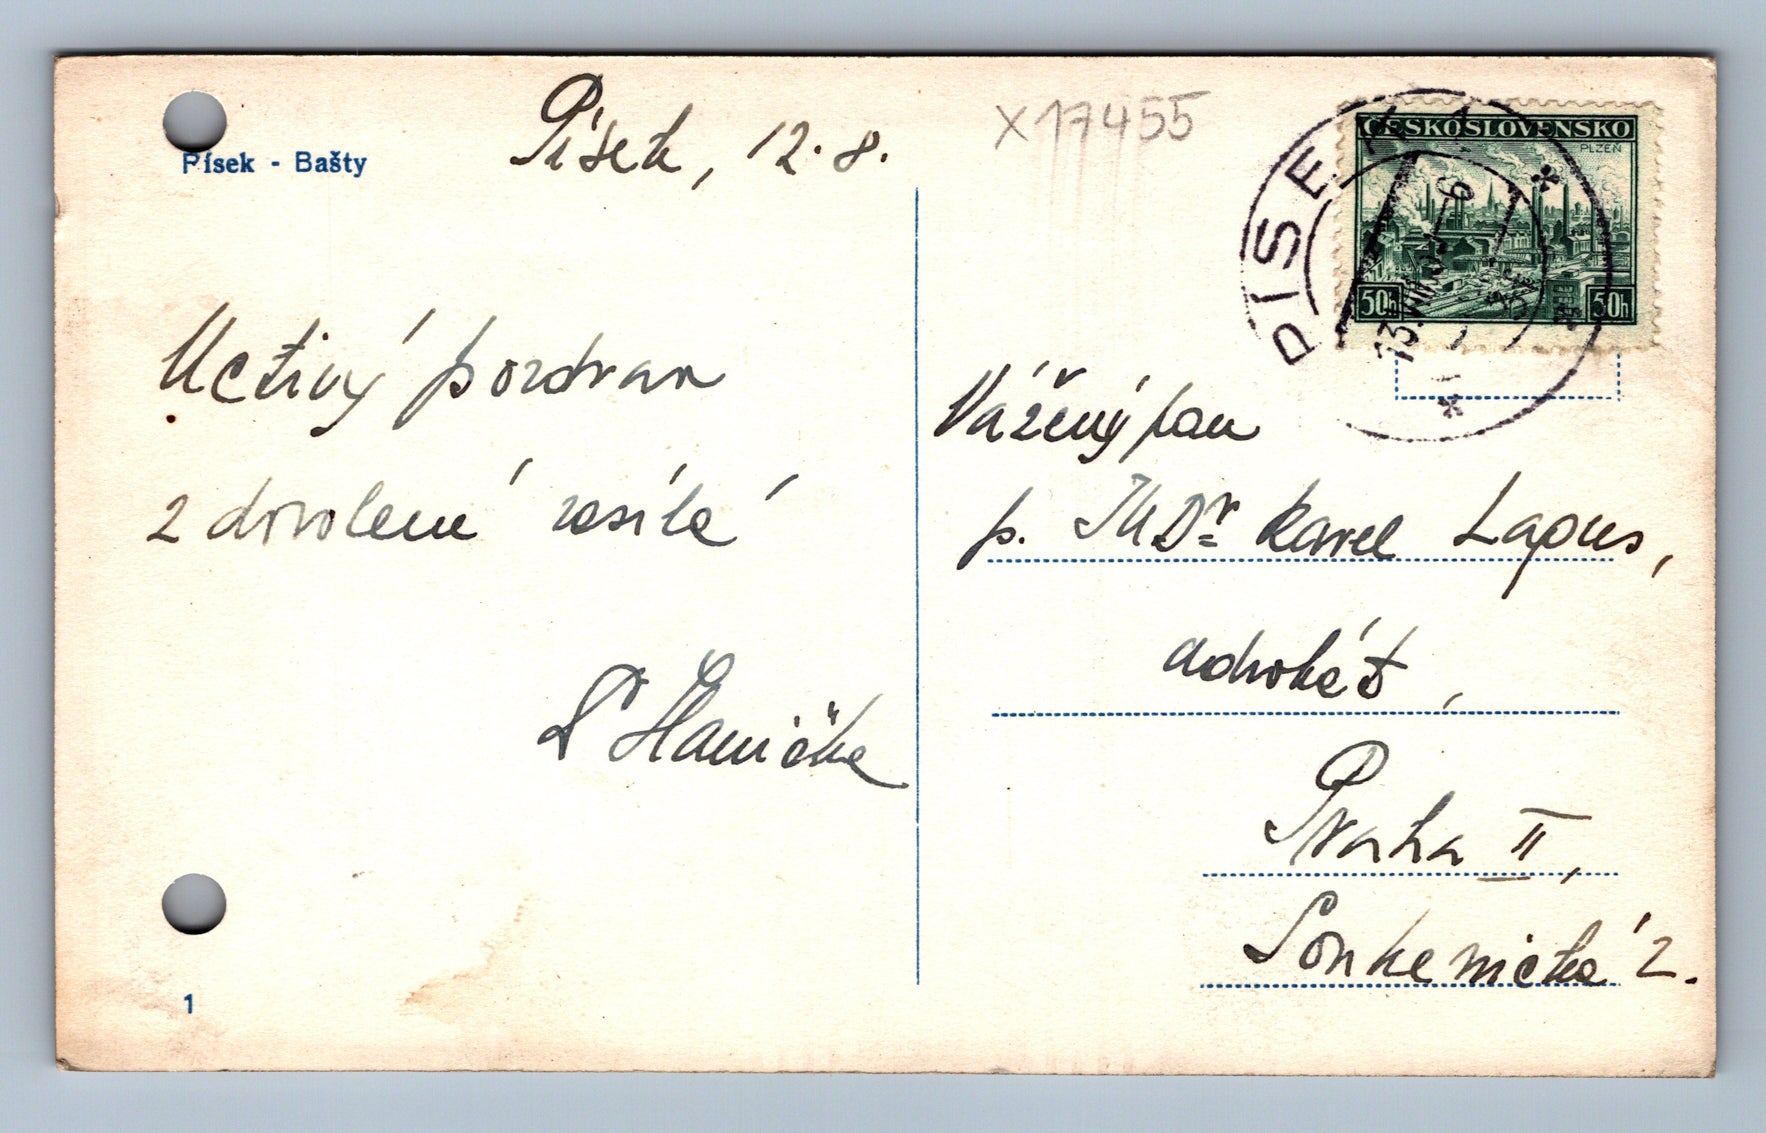 Písek - Bašty
Písek, 12.8.
X17455
ČESKOSLOVENSKO
PLZEŇ
50h 50h
PÍSEK 1
13.VIII.
Uctivý pozdrav
z dovolené zasílá
Hanička
Vážený pan
p. JUDr Karel Lapus,
advokát,
Praha II,
Soukenická 2.
1